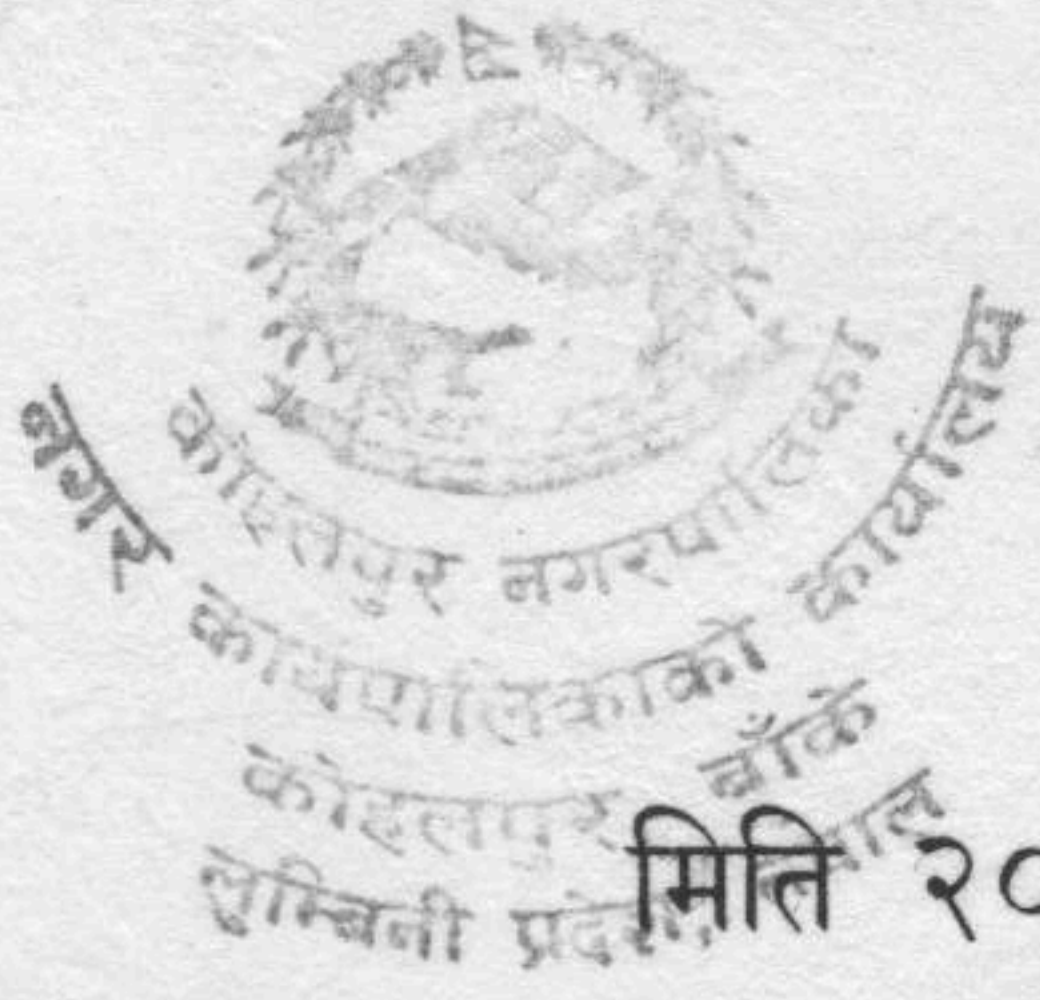 कोहलपुर नगरपालिका
नगर कार्यपालिकाको कार्यालय
कोहलपुर, बाँके
लुम्बिनी प्रदेश, नेपाल
मिति २०